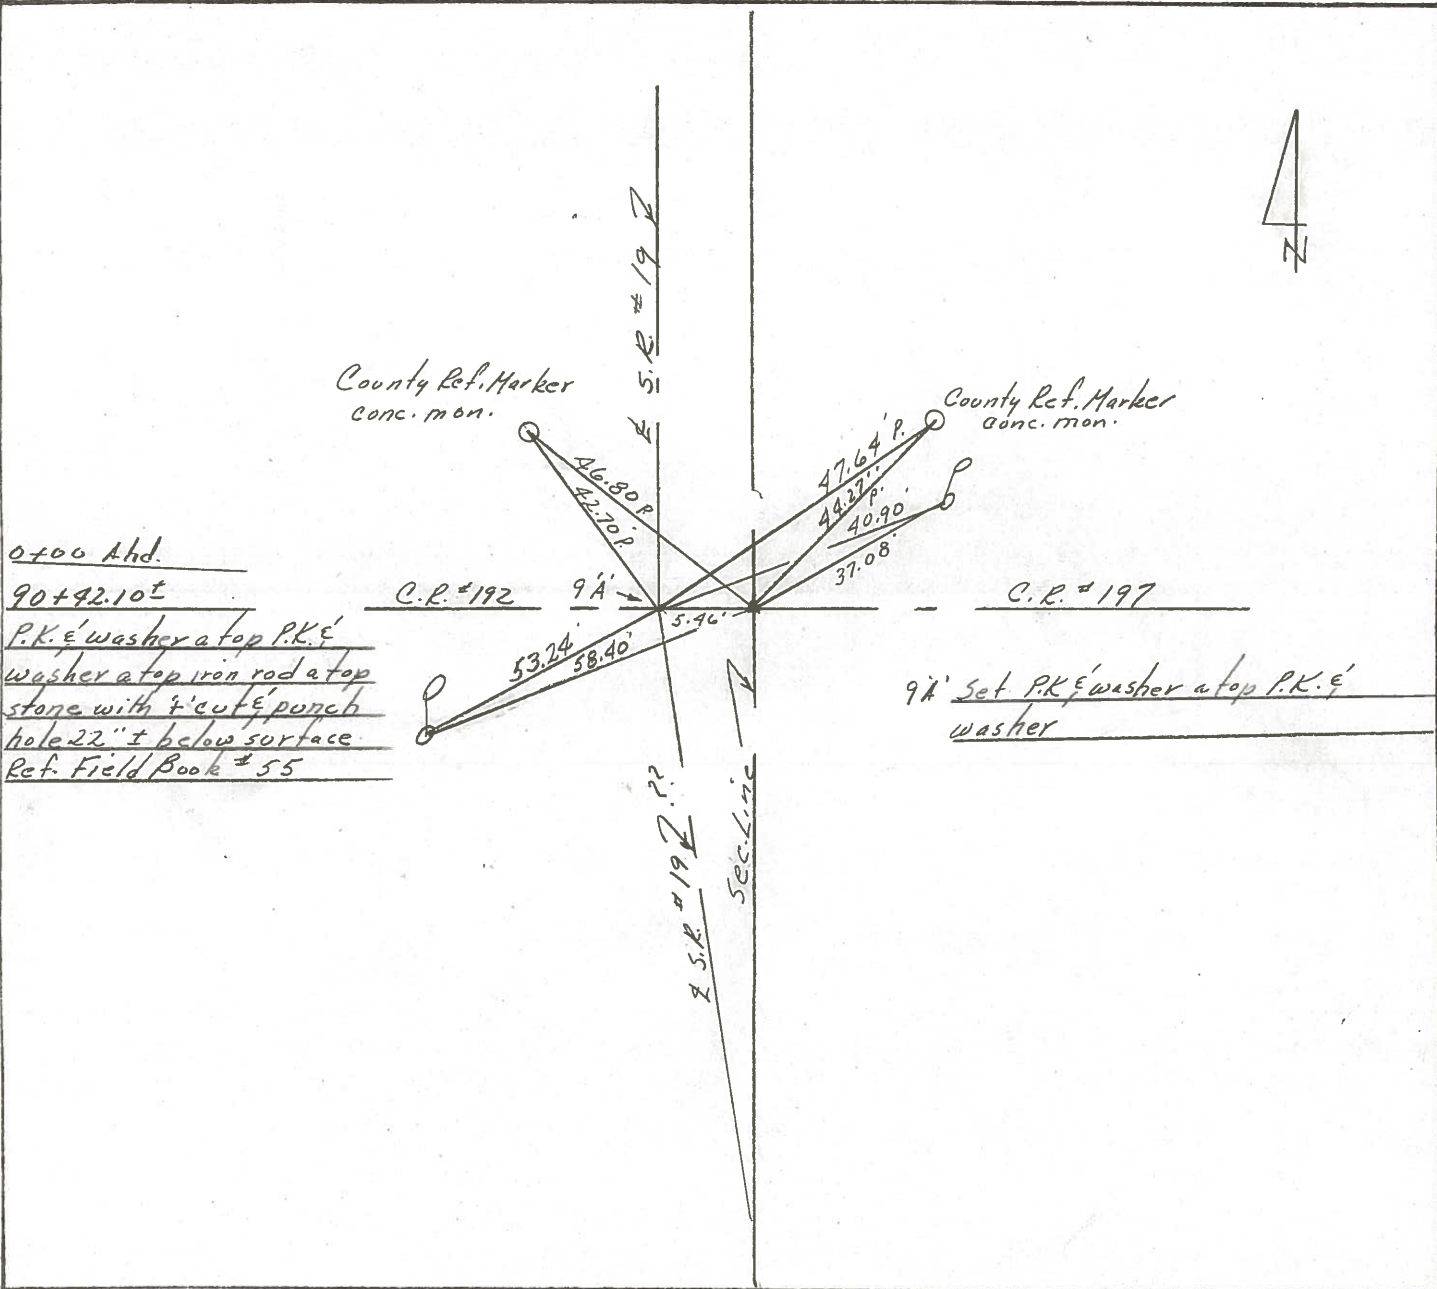 N
℄ S.R. # 19
County Ref. Marker
conc. mon.
County Ref. Marker
conc. mon.
46.80' P.
42.70' P.
47.64' P.
44.27' P.
40.90'
37.08'
0+00 Ahd.
90+42.10±
P.K. & washer atop P.K. &
washer atop iron rod atop
stone with '+' cut & punch
hole 22" ± below surface
Ref. Field Book # 55
C.R. # 192
9'A'
5.46'
C.R. # 197
53.24'
58.40'
9'A' Set P.K. & washer atop P.K. &
washer
℄ S.R. # 19 ??
Sec. Line